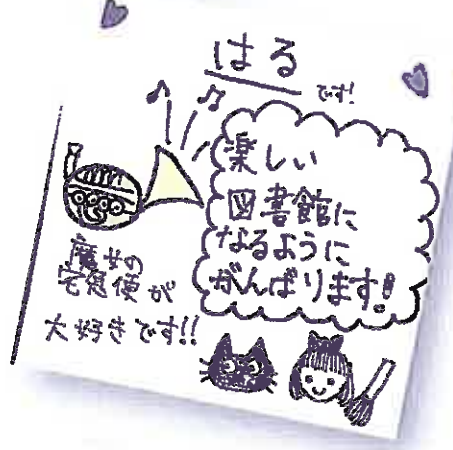 はる
です!
楽しい
図書館に
なるように
がんばります!
魔女の
宅急便が
大好きです!!